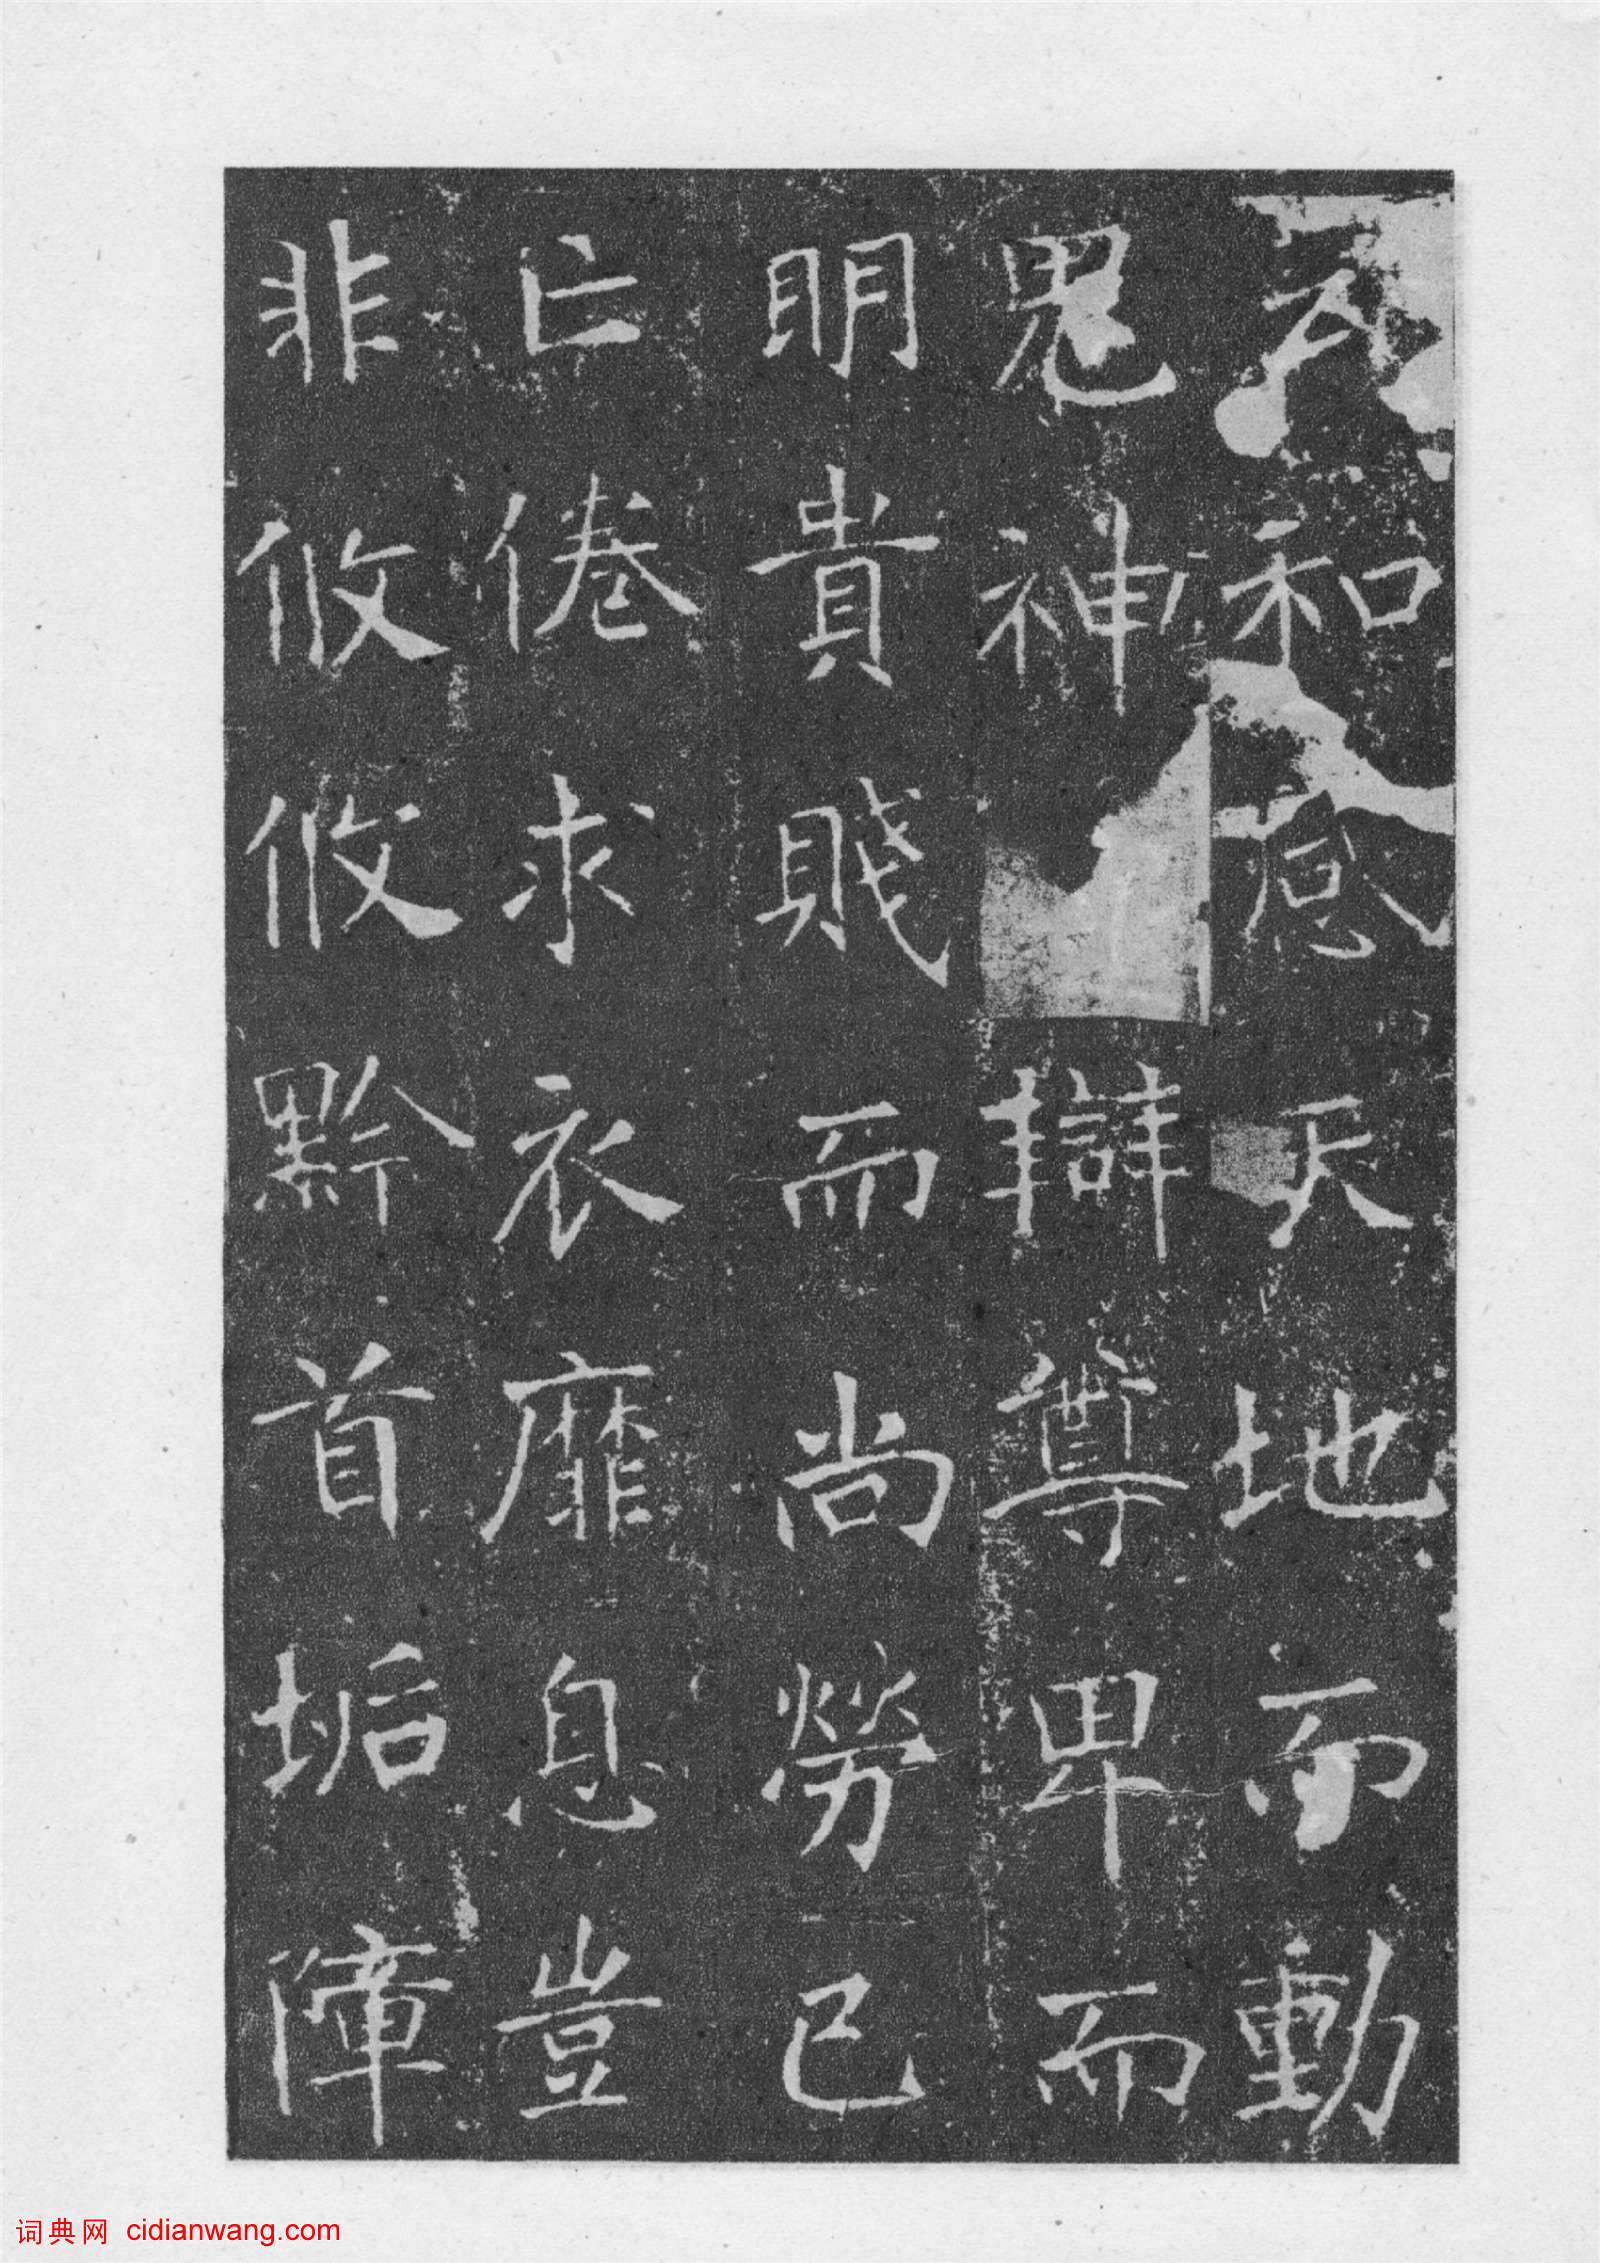 和感天地而動
鬼神辯尊卑而
明貴賤而尚勞己
亡倦求衣靡息豈
非攸攸黔首垢障
词典网 cidianwang.com